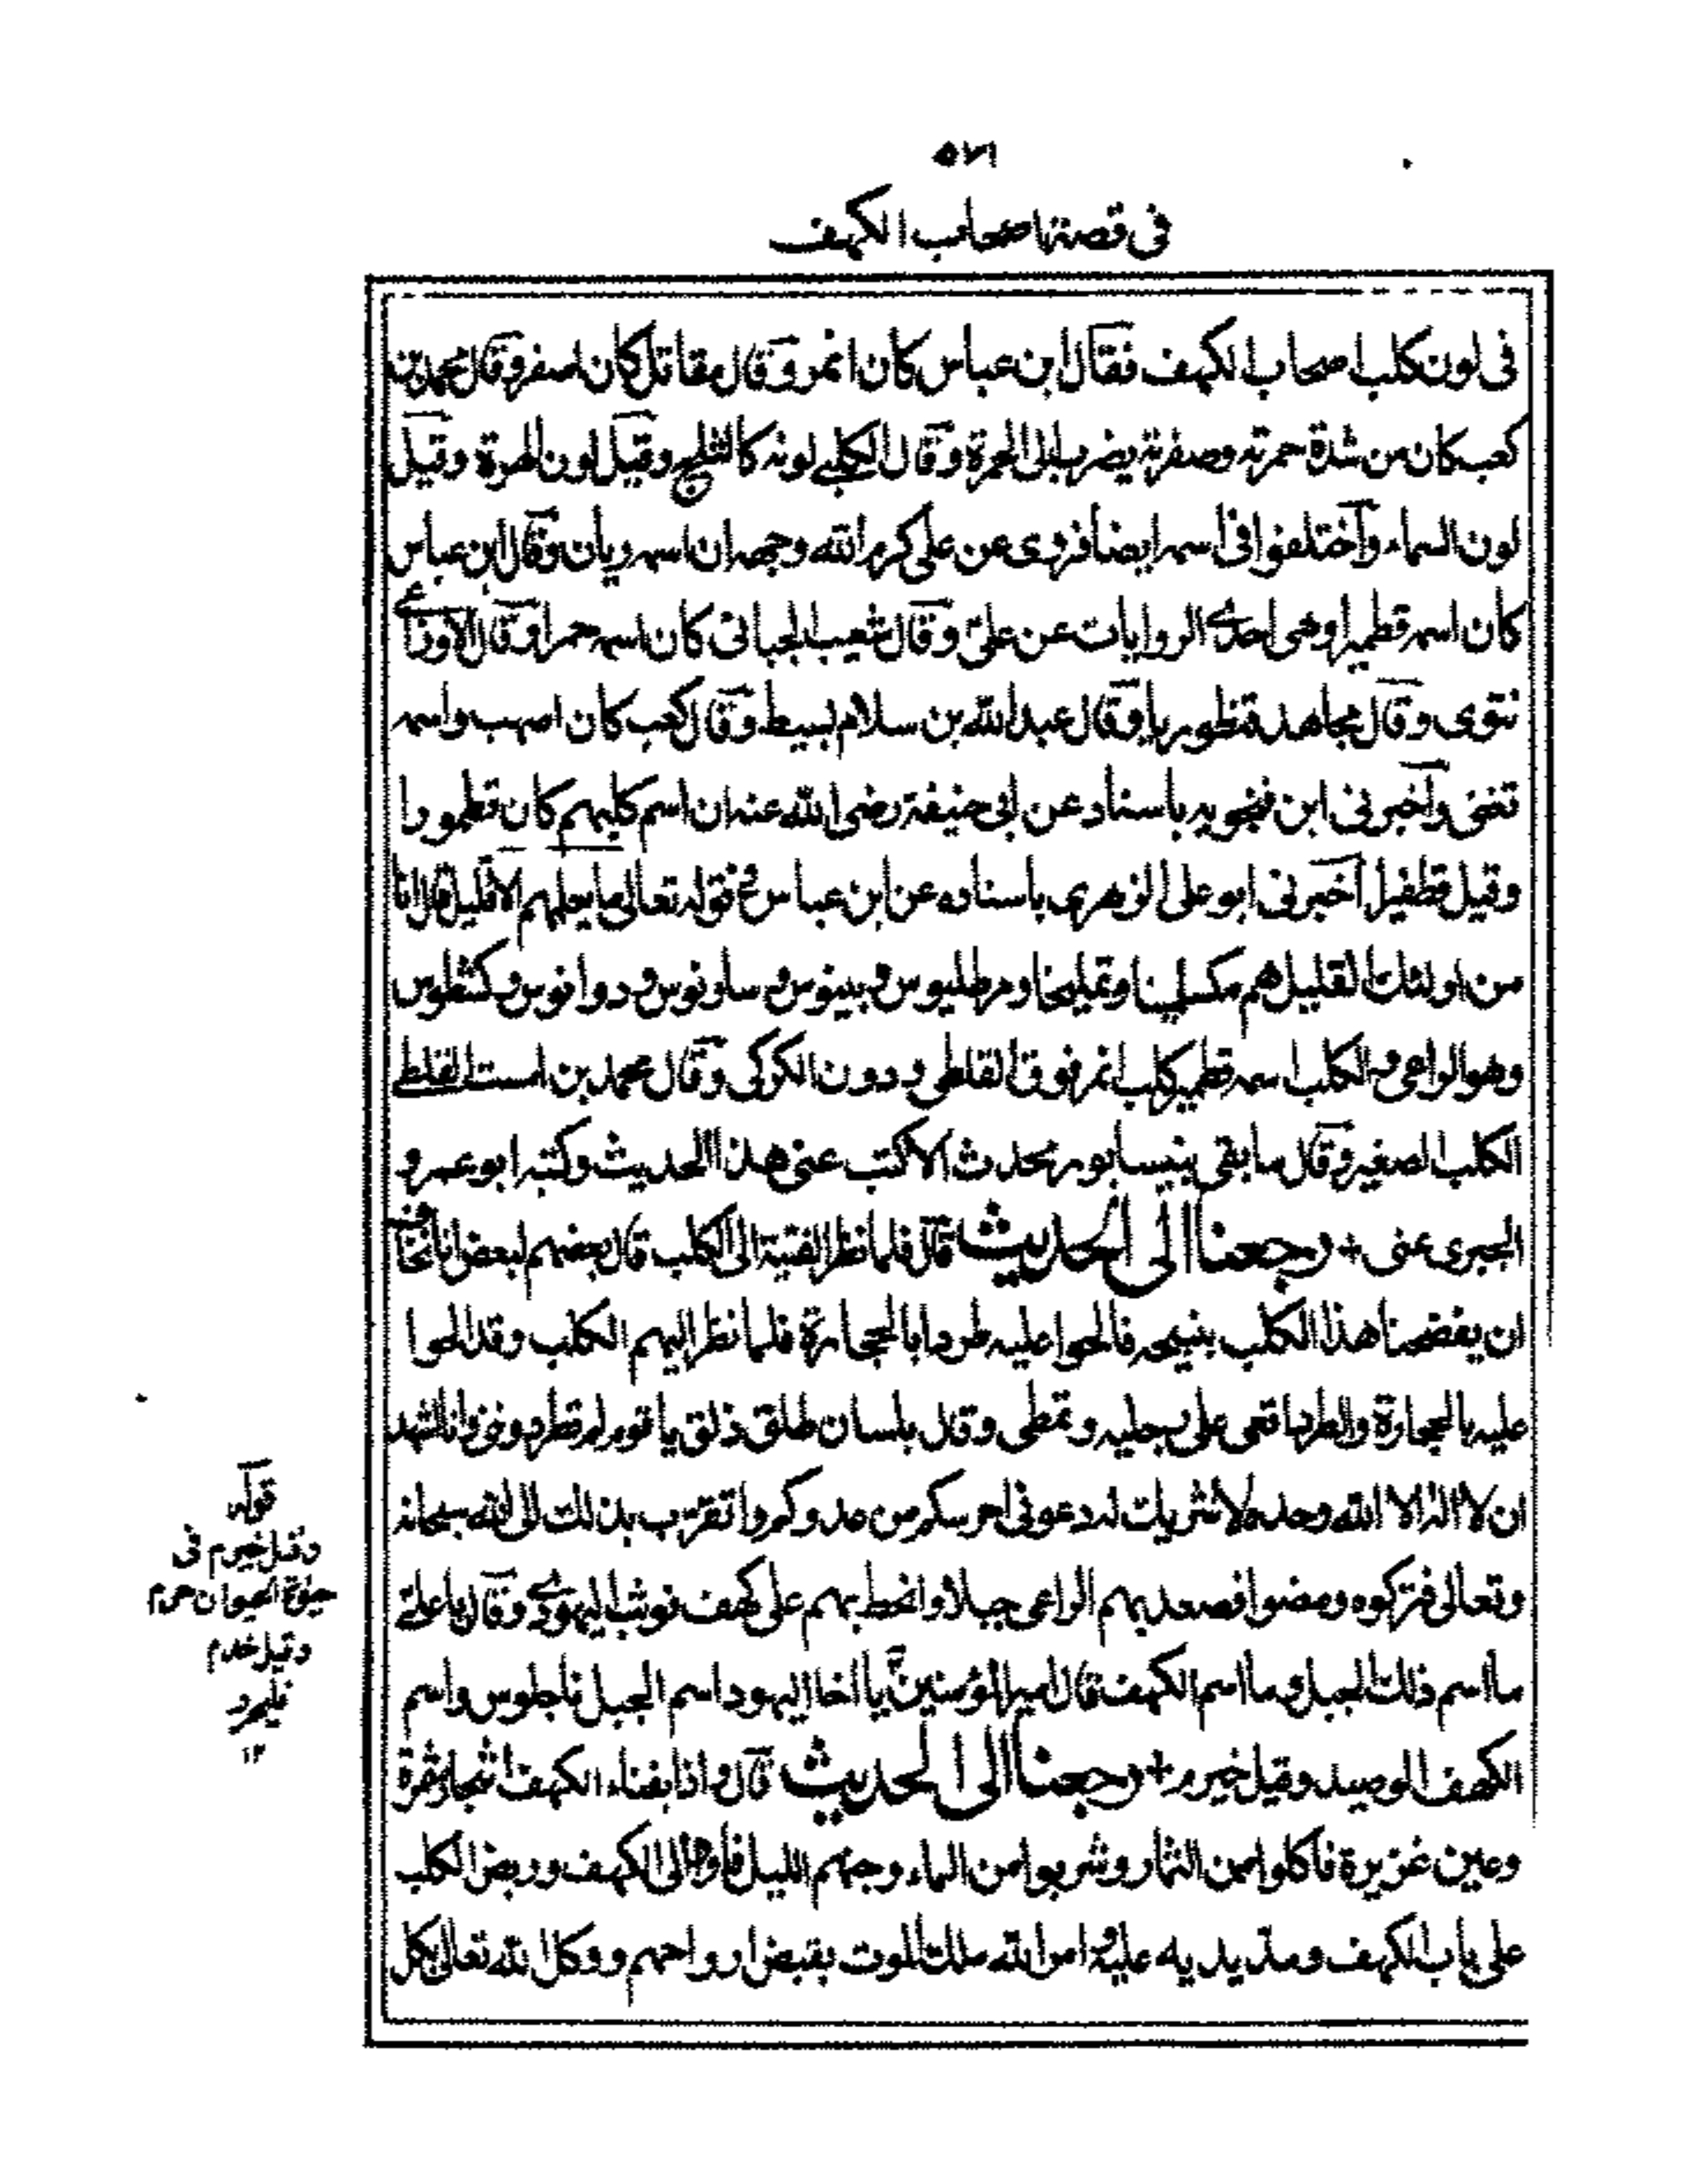 ٥٧١
فى قصة اصحاب الكهف
فى لون كلب اصحاب الكهف فقال ابن عباس كان انمر وقال مقاتل كان اصفر وقال محمد بن
كعب كان من شدة حمرته وصفرته يضرب الى الحمرة وقال الكلبى لونه كالثلج وقيل لون الهرة وقيل
لون السماء واختلفوا فى اسمه ايضا فروى عن على كرم الله وجهه ان اسمه ريان وقال ابن عباس
كان اسمه قطمير وهى احدى الروايات عن على وقال شعيب الجبائى كان اسمه حمرا وقال الاوزاعى
نتوى وقال مجاهد قنطوريا وقال عبد الله بن سلام بسيط وقال كعب كان اصهب واسمه
تقنى واخبرنى ابن فنجويه باسناد عن ابى حنيفة رضى الله عنه ان اسم كلبهم كان قطمورا
وقيل قطفيل اخبرنى ابو على الزهرى باسناده عن ابن عباس فى قوله تعالى ما يعلمهم الا قليل قال انا
من اولئك القليل هم مكسلمينا وتمليخا ومرطليوس وبينوس وسارنوس ودوانوس وكشطوس
وهو الراعى والكلب اسمه قطمير كلب انمر فوق القلطى ودون الكركى وقال محمد بن اسحق القلطى
الكلب الصغير وقال ما بقى بنيسابور محدث الا كتب عنى هذا الحديث وكتبه ابو عمرو
الحيرى عنى + رجعنا الى الحديث قال فلما نظر الفتية الى الكلب قال بعضهم لبعض انا نخاف
ان يفضحنا هذا الكلب بنبيحه فالحوا عليه طردا بالحجارة فلما نظر اليهم الكلب وقد الحوا
عليه بالحجارة والطرد اقعى على رجليه وتمطى وقال بلسان طلق ذلق يا قوم لم تطردوننى وانا اشهد
ان لا اله الا الله وحده لا شريك له دعونى احرسكم من عدوكم واتقرب بذلك الى الله سبحانه
وتعالى فتركوه ومضوا فصعد بهم الراعى جبلا وانحط بهم على كهف فوثب اليهودى وقال يا على
ما اسم ذلك الجبل وما اسم الكهف قال امير المؤمنين يا اخا اليهود اسم الجبل ناجلوس واسم
الكهف الوصيد وقيل خيرم + رجعنا الى الحديث قال واذا بفناء الكهف اشجار مثمرة
وعين غزيرة فاكلوا من الثمار وشربوا من الماء وجنهم الليل فأووا الى الكهف وربض الكلب
على باب الكهف ومد يديه عليه وامر الله ملك الموت بقبض ارواحهم ووكل الله تعالى بكل
قوله
وقيل خيرم فى
حيوة الحيوان حرم
وقيل خدم
فليحرر
١٢